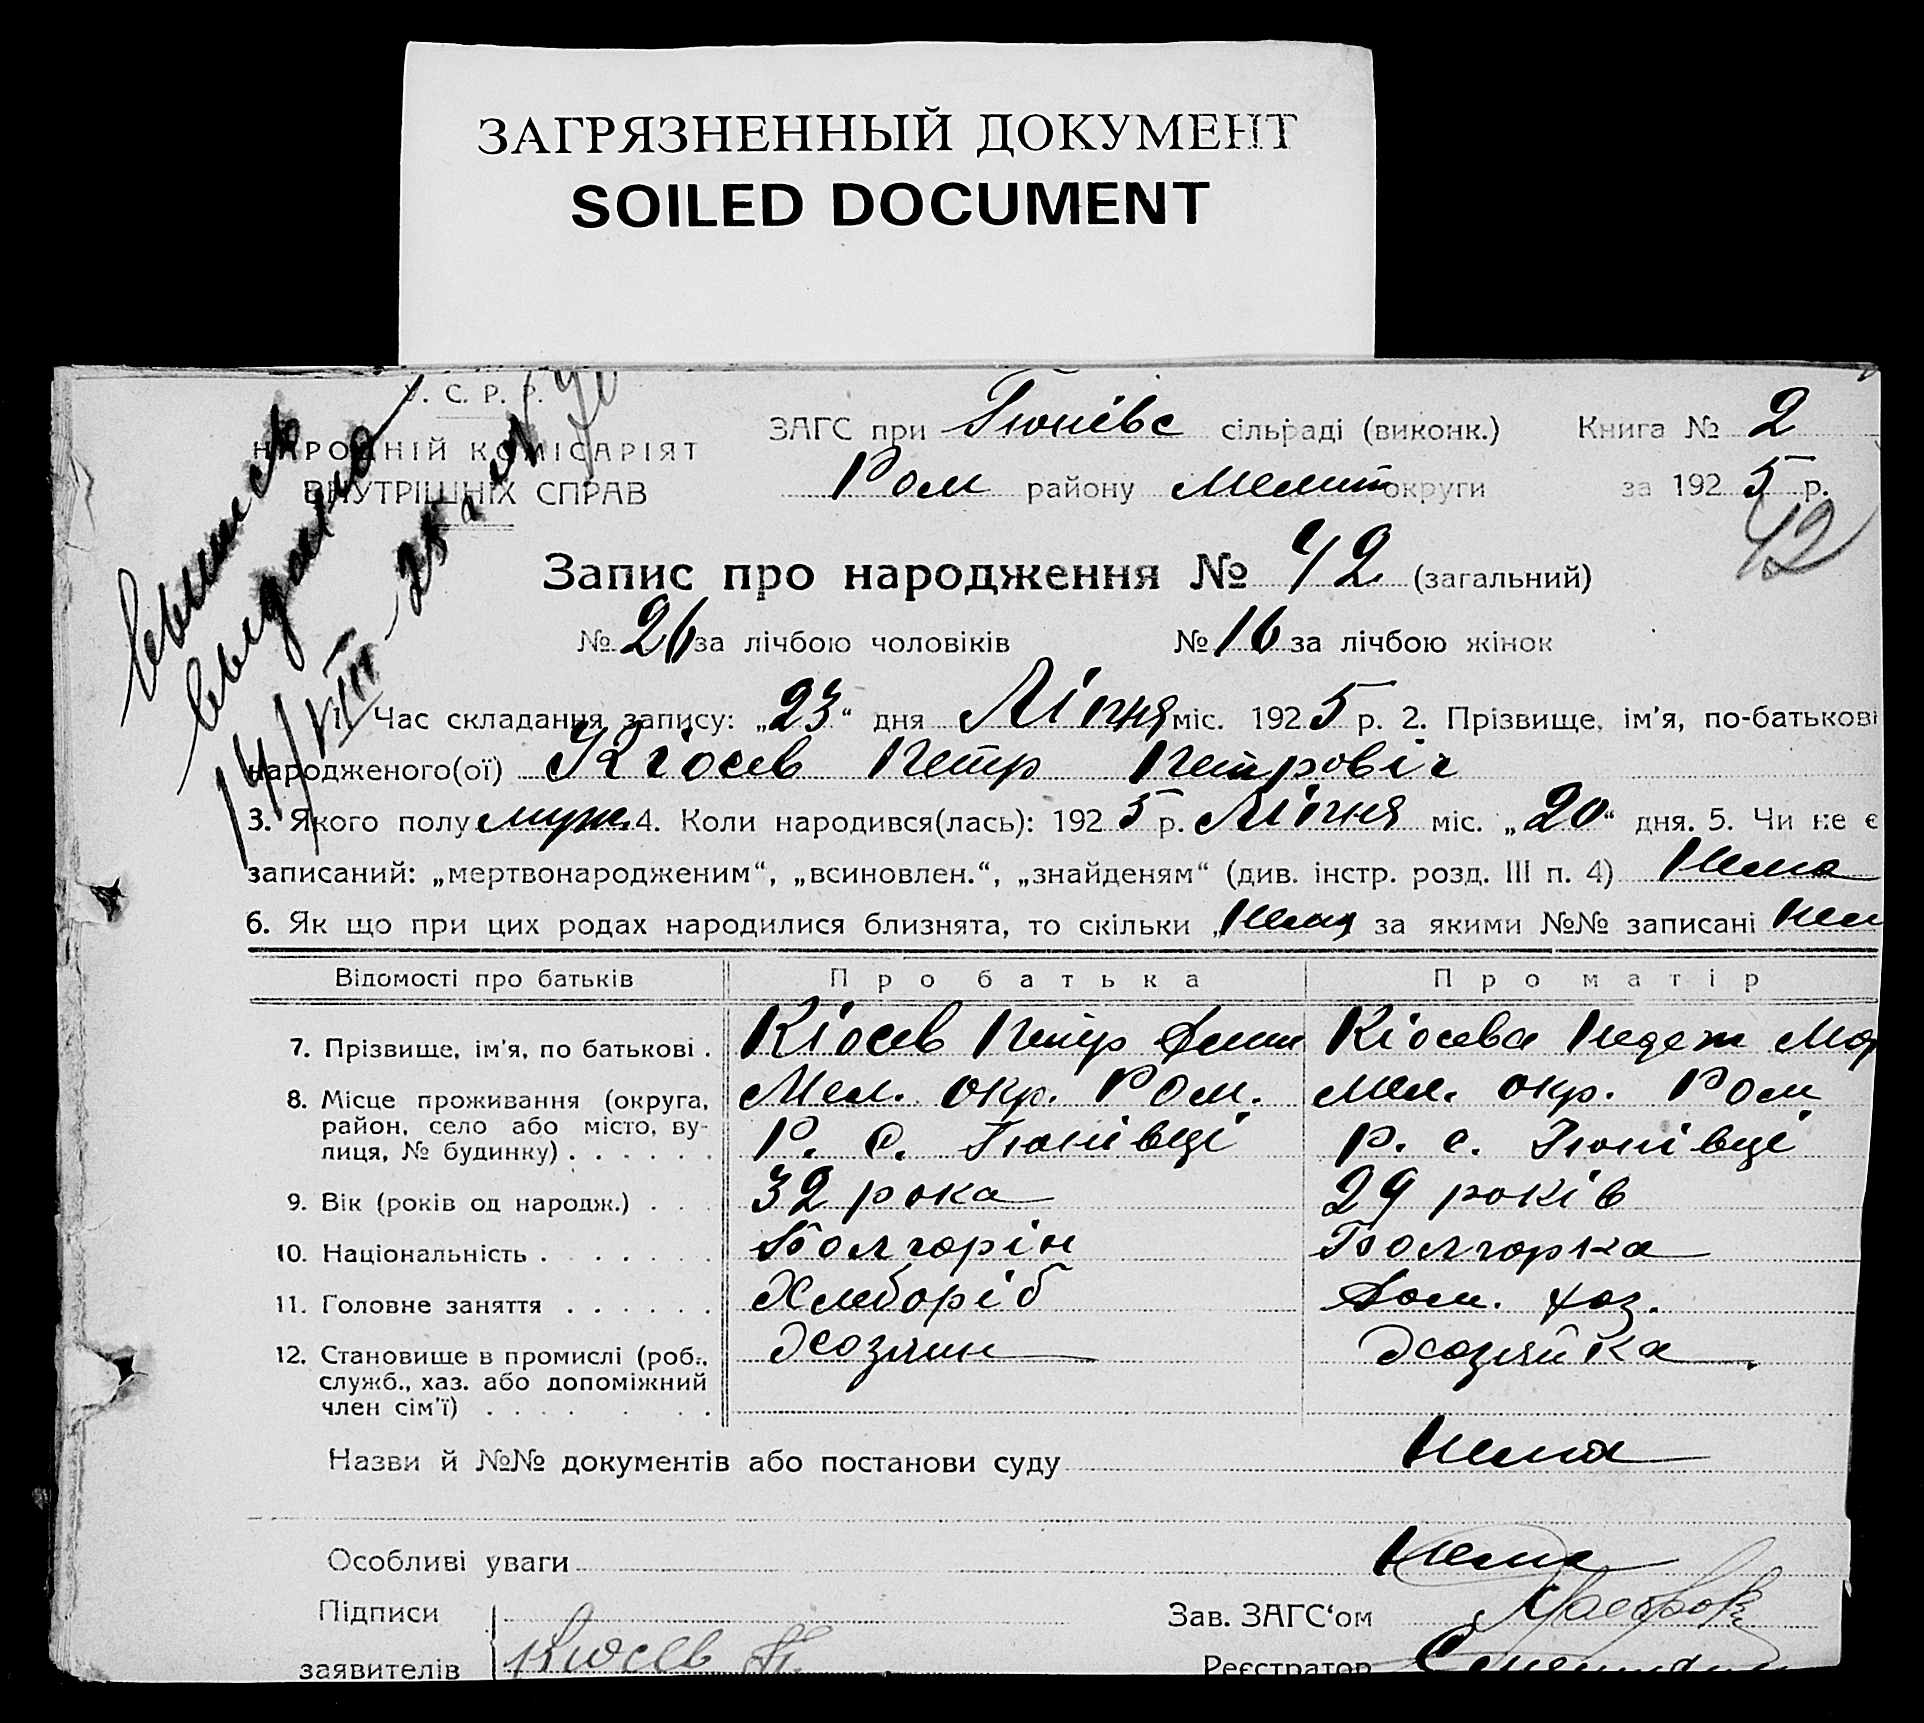 ЗАГРЯЗНЕННЫЙ ДОКУМЕНТ
SOILED DOCUMENT
У. С. Р. Р.
НАРОДНІЙ КОМІСАРІЯТ
ВНУТРІШНІХ СПРАВ
ЗАГС при Тюнівс сільраді (виконк.) Книга № 2
Ром району Мелит округи за 1925 р.
42
Выпись
выдана
14/VIII-25
Запис про народження № 42 (загальний)
№ 26 за лічбою чоловіків № 16 за лічбою жінок
1. Час складання запису: „23“ дня Літня міс. 1925 р. 2. Прізвище, ім'я, по-батькові
народженого(ої) Кіосев Петр Петровіч
3. Якого полу муж. 4. Коли народився(лась): 1925 р. Літня міс. „20“ дня. 5. Чи не є
записаний: „мертвонародженим“, „всиновлен.“, „знайденям“ (див. інстр. розд. III п. 4) Нема
6. Як що при цих родах народилися близнята, то скільки „Нема за якими №№ записані Нем
Відомості про батьків Про батька Про матір
7. Прізвище, ім'я, по батькові . Кіосев Петр Дмит Кіосева Надеж Мар
8. Місце проживання (округа, Мел. окр. Ром. Мел. окр. Ром
район, село або місто, ву- Р. с. Тюнівці р. с. Тюнівці
лиця, № будинку) . . . . . .
9. Вік (років од народж.) . . . 32 рока 29 років
10. Національність . . . . . . . Болгарін Болгарка
11. Головне заняття . . . . . . Хлеборіб Дом. хоз.
12. Становище в промислі (роб., Хозяин Хозяйка.
служб., хаз. або допоміжний
член сім'ї) . . . . . . .
Назви й №№ документів або постанови суду Нема
Особливі уваги Нема
Підписи Зав. ЗАГС'ом
заявителів Кюсев П. Реєстратор